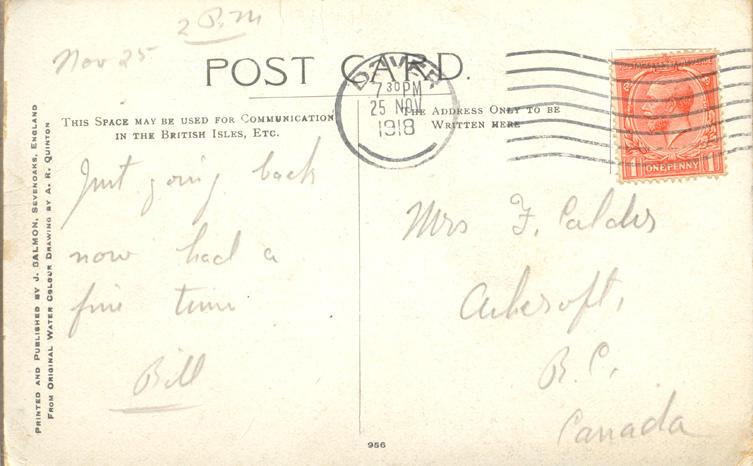 2 P.M
Nov 25
POST CARD.
DOVER
7 30 PM
25 NOV
1918
THIS SPACE MAY BE USED FOR COMMUNICATION
IN THE BRITISH ISLES, ETC.
THE ADDRESS ONLY TO BE
WRITTEN HERE
1 ONE PENNY 1
Just going back
now had a
fine time
Bill
Mrs F. Calder
Ashcroft,
B.C,
Canada
PRINTED AND PUBLISHED BY J. SALMON, SEVENOAKS, ENGLAND
FROM ORIGINAL WATER COLOUR DRAWING BY A. R. QUINTON
956